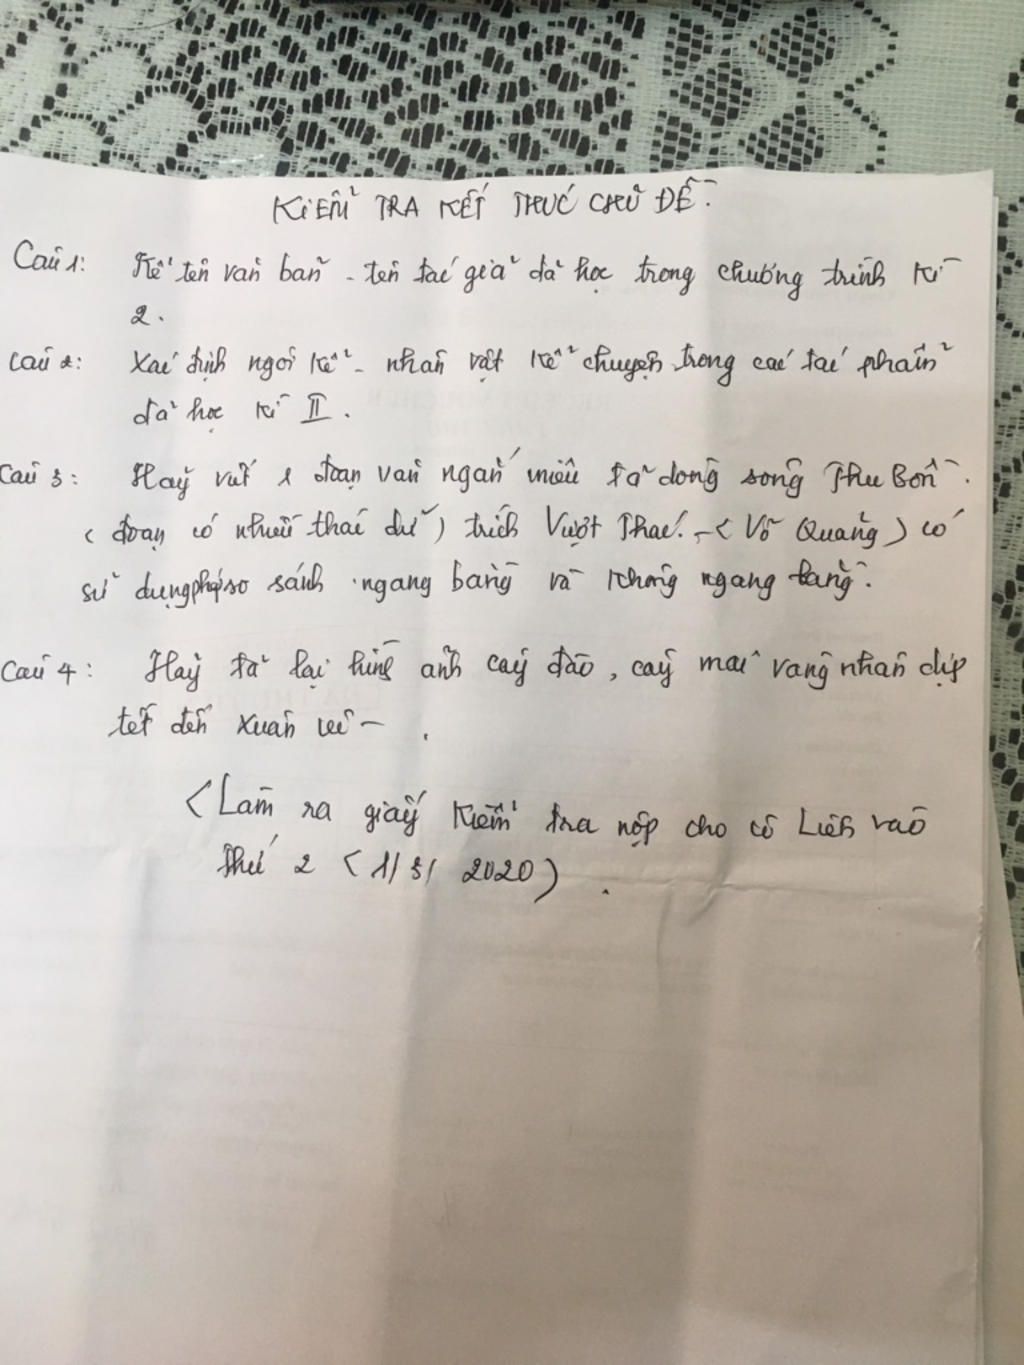 KIỂM TRA KẾT THÚC CHỦ ĐỀ.
Câu 1: Kể tên văn bản - tên tác giả đã học trong chương trình kì
2.
Câu 2: Xác định ngôi kể - nhân vật kể chuyện trong các tác phẩm
đã học kì II.
Câu 3: Hãy viết 1 đoạn văn ngắn miêu tả dòng sông Thu Bồn.
(đoạn có nhiều thác dữ) trích Vượt Thác. - (Võ Quảng) có
sử dụng phép so sánh ngang bằng và không ngang bằng.
Câu 4: Hãy tả lại hình ảnh cây đào, cây mai vàng nhân dịp
tết đến xuân về.
(Làm ra giấy kiểm tra nộp cho cô Liên vào
thứ 2 (1/3/2020).